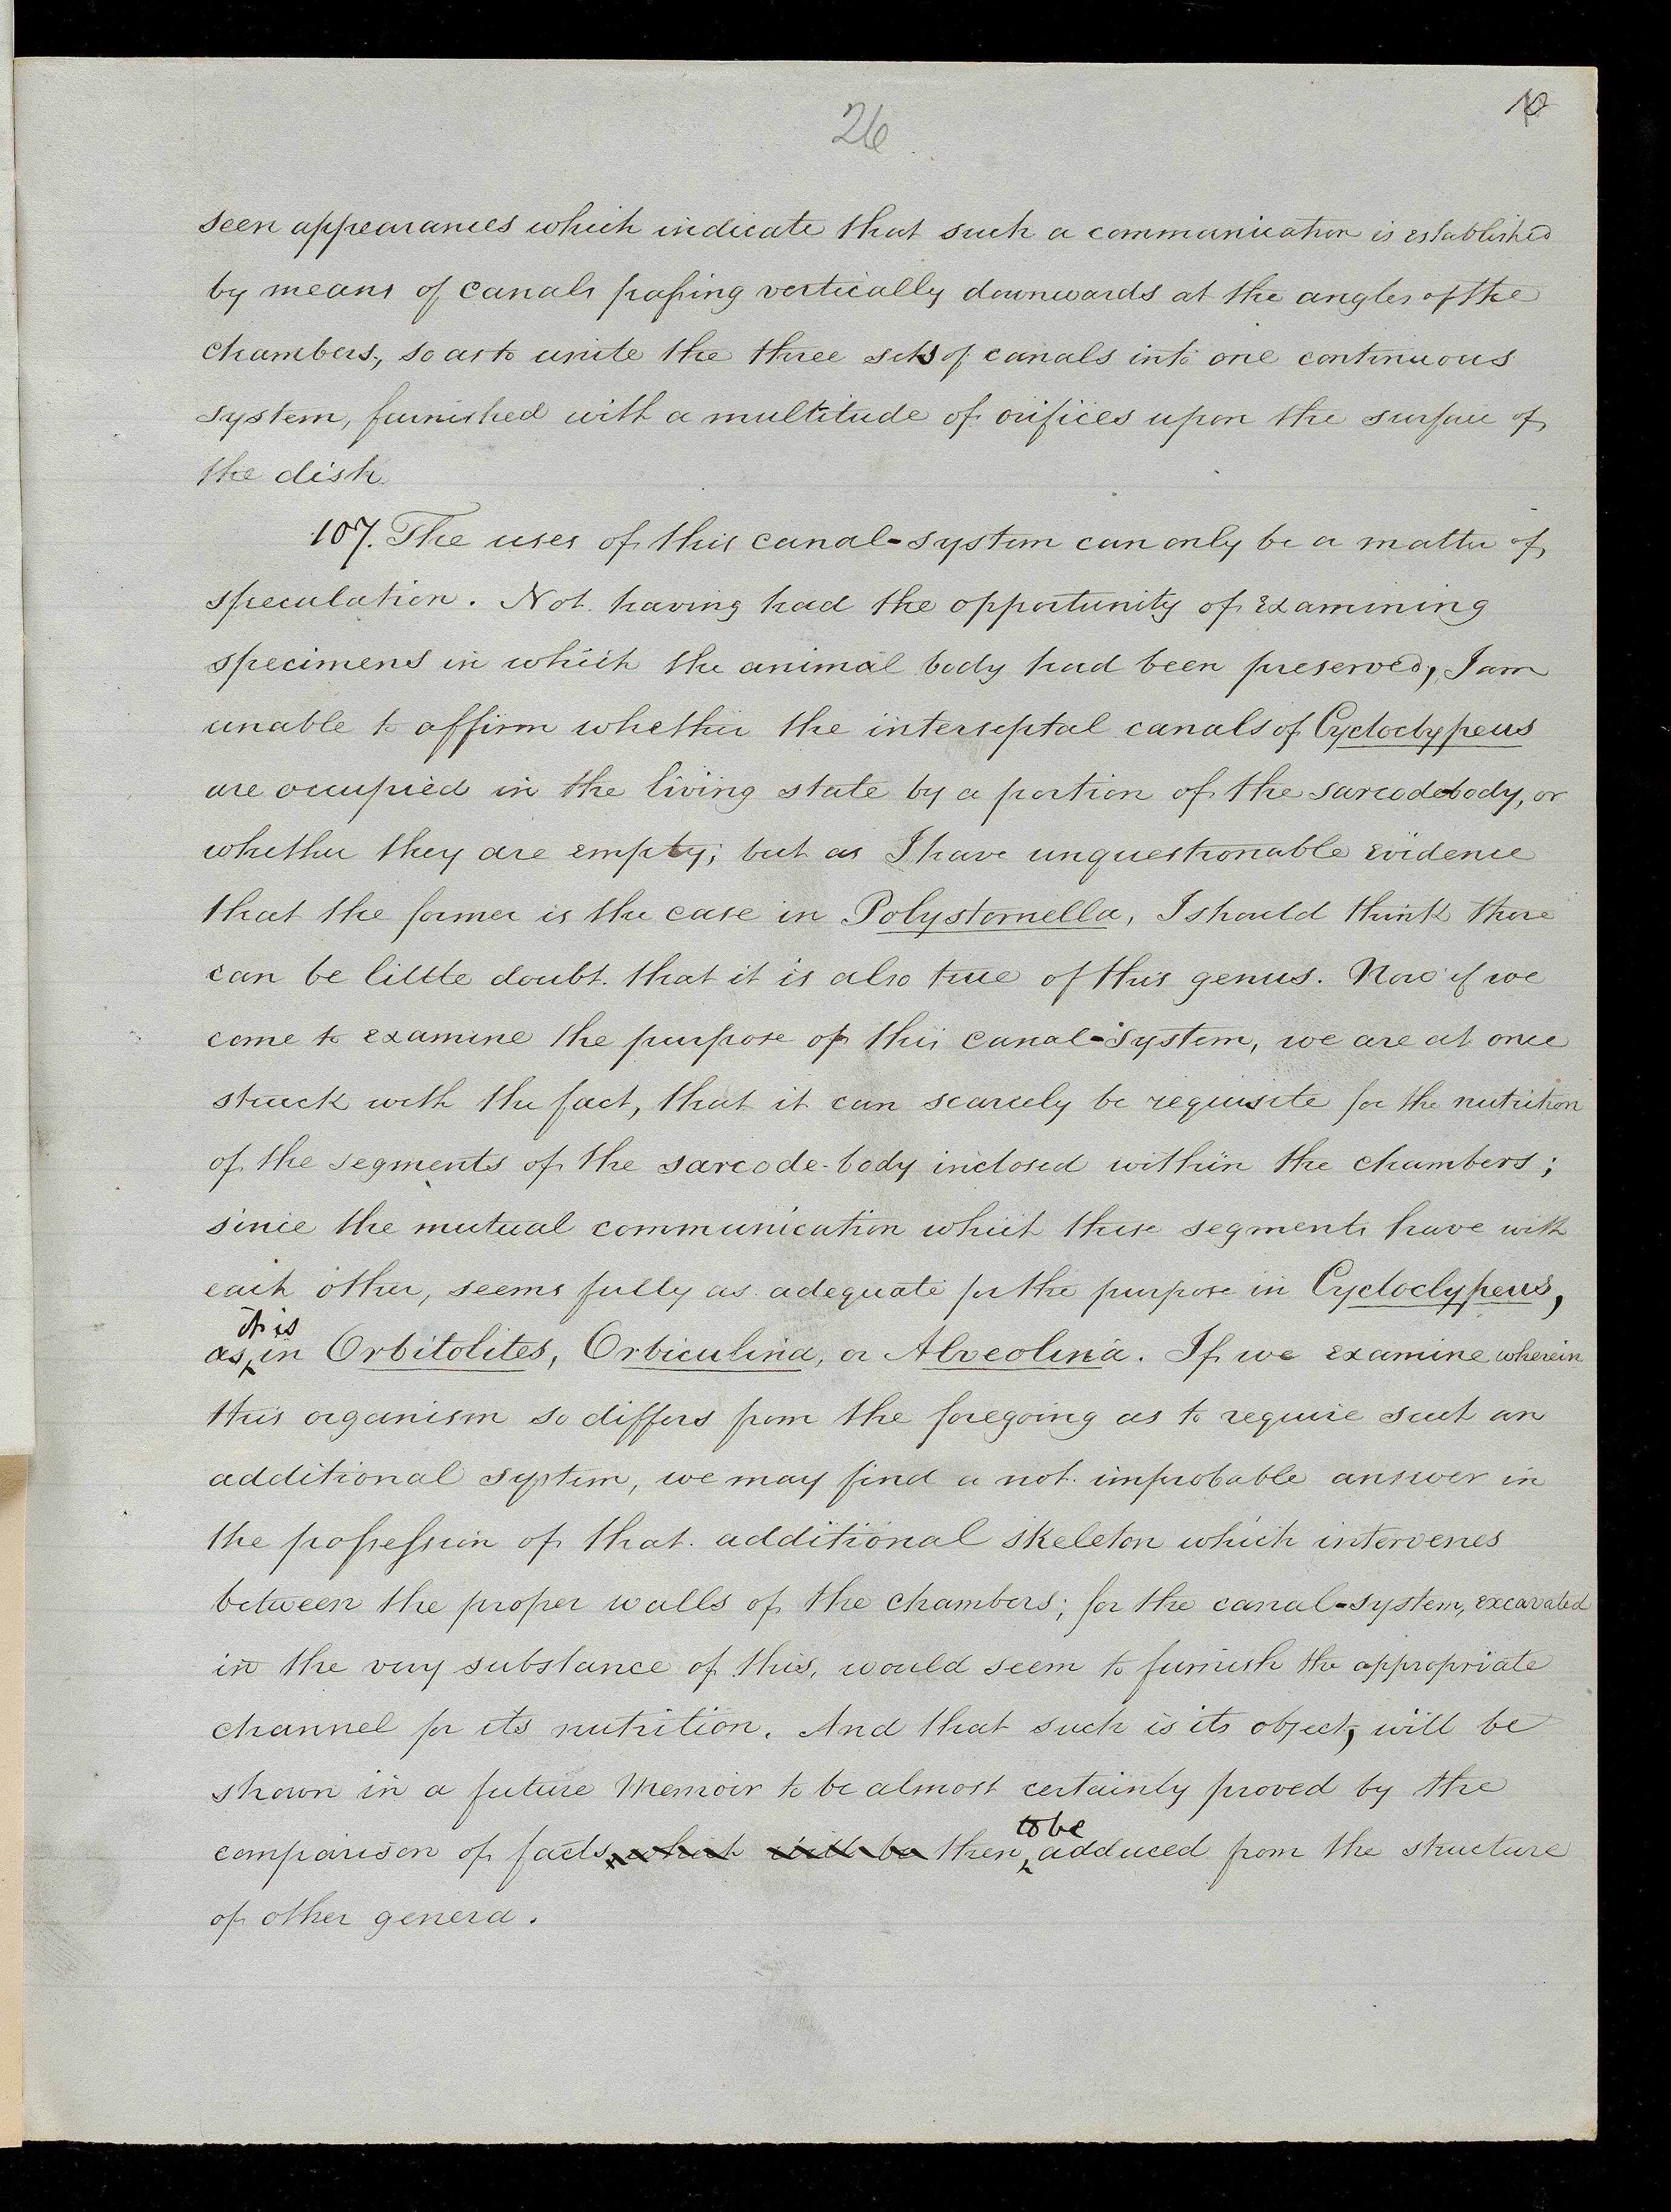 26
seen appearances which indicate that such a communication is established
by means of canals passing vertically downwards at the angles of the
chambers, so as to unite the three sets of canals into one continuous
system, furnished with a multitude of orifices upon the surface of
the disk.
107. The uses of this canal-system can only be a matter of
speculation. Not having had the opportunity of examining
specimens in which the animal body had been preserved, I am
unable to affirm whether the interseptal canals of Cycloclypeus
are occupied in the living state by a portion of the sarcode-body, or
whether they are empty; but as I have unquestionable evidence
that the former is the case in Polystomella, I should think there
can be little doubt that it is also true of this genus. Now if we
come to examine the purpose of this canal-system, we are at once
struck with the fact, that it can scarcely be requisite for the nutrition
of the segments of the sarcode-body inclosed within the chambers;
since the mutual communication which these segments have with
each other, seems fully as adequate for the purpose in Cycloclypeus,
as it is in Orbitolites, Orbiculina, or Alveolina. If we examine wherein
this organism so differs from the foregoing as to require such an
additional system, we may find a not improbable answer in
the possession of that additional skeleton which intervenes
between the proper walls of the chambers; for the canal-system, excavated
in the very substance of this, would seem to furnish the appropriate
channel for its nutrition. And that such is its object, will be
shown in a future Memoir to be almost certainly proved by the
comparison of facts, which will be then to be adduced from the structure
of other genera.